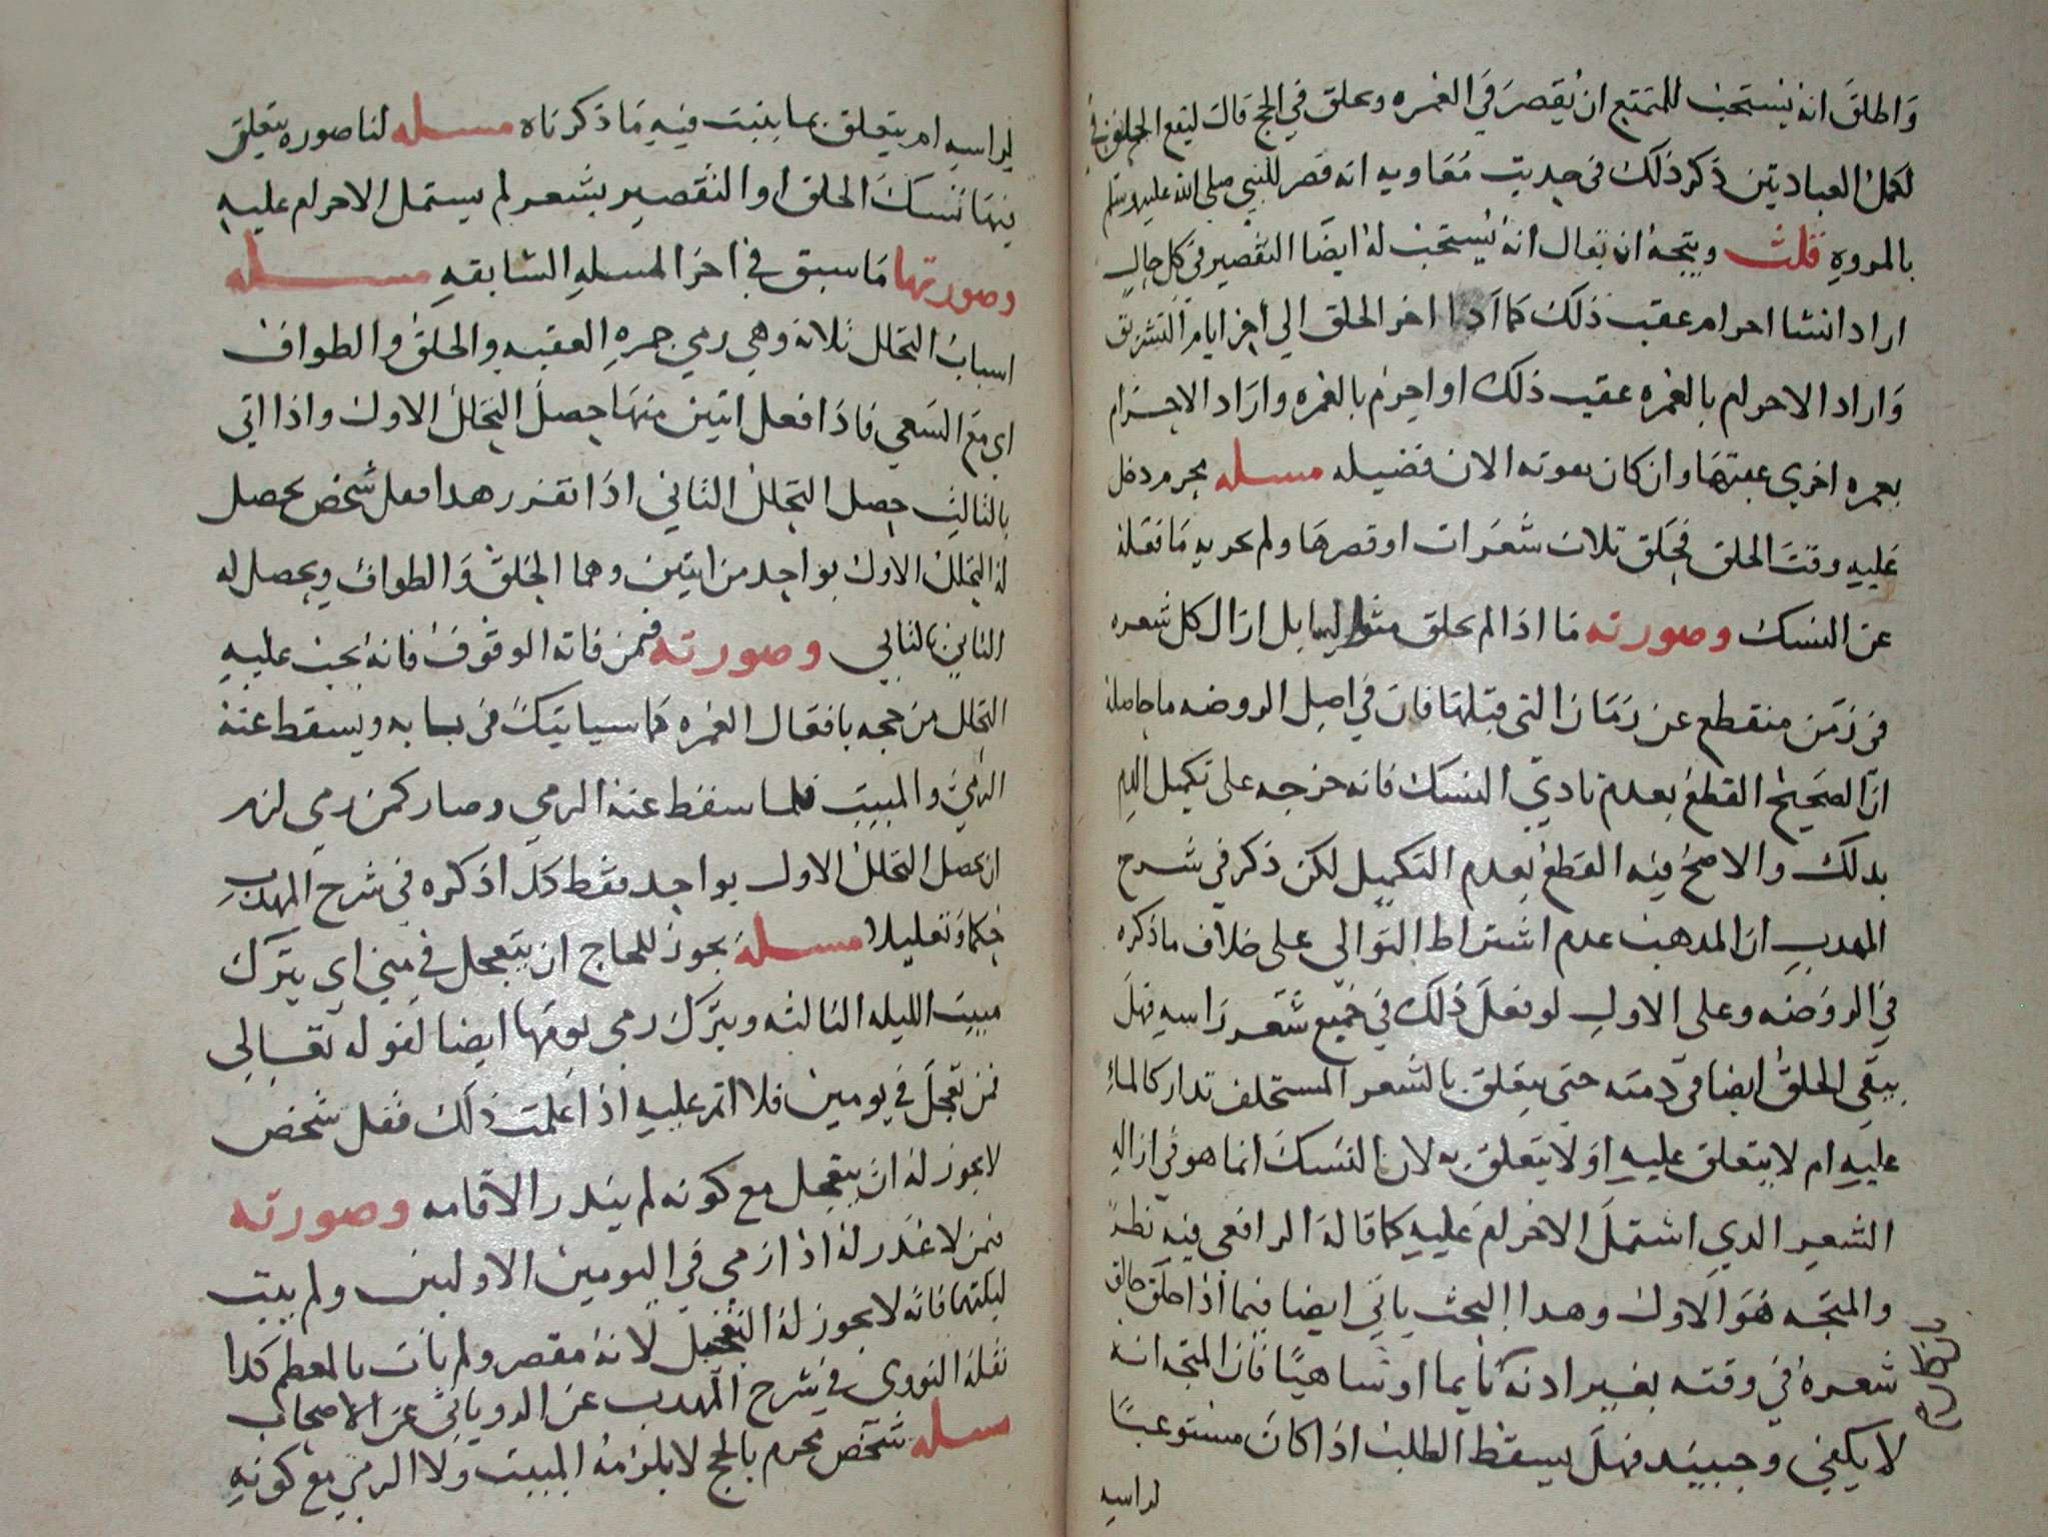 واطلق انه يستحب للمتمتع ان يقصر في العمره ويحلق في الحج قال ليقع الحلق في
اكمل العبادتين ذكر ذلك في حديث معاويه انه قصر للنبي صلى الله عليه وسلم
بالمروه قلت ويتجه ان يقال انه يستحب له ايضا التقصير في كل حال
اراد انشا احرام عقب ذلك كما اذا اخر الحلق الي اخر ايام التشريق
واراد الاحرام بالعمره عقيب ذلك او احرم بالعمره واراد الاحرام
بعمره اخري عقبتها وان كان يفوته الان فضيله مسله محرم دخل
عليه وقت الحلق فحلق ثلاث شعرات او قصرها ولم يجزيه ما فعله
عن النسك وصورته ما اذا لم يحلق متواليا بل ازال كل شعره
في زمن منقطع عن زمان التي قبلها فان في اصل الروضه ما حاصله
ان الصحيح القطع بعدم تادي النسك فانه خرجه على تكميل الدم
بذلك والاصح فيه القطع بعدم التكميل لكن ذكر في شرح
المهذب ان المذهب عدم اشتراط التوالي على خلاف ما ذكره
في الروضه وعلى الاول لو فعل ذلك في جميع شعر راسه فهل
يبقي الحلق ايضا في ذمته حتى يتعلق بالشعر المستخلف تداركا لما
عليه ام لا يتعلق عليه او لا يتعلق به لان النسك انما هو في ازاله
الشعر الذي اشتمل الاحرام عليه كما قاله الرافعي فيه نظر
والمتجه هو الاول وهذا البحث ياتي ايضا فيما اذا حلق حالق
شعره في وقته بغير اذنه نايما او ساهيا فان المتجه انه
لا يكفي وحينيذ فهل يسقط الطلب اذا كان مستوعبا
لراسه
لراسه ام يتعلق بما ينبت فيه ما ذكرناه مسله لنا صوره يتعلق
فيها نسك الحلق او التقصير بشعر لم يشتمل الاحرام عليه
وصورتها ما سبق في اخر المسله السابقه مسله
اسباب التحلل ثلاثه وهي رمي جمره العقبه والحلق والطواف
اي مع السعي فاذا فعل اثنين منها حصل التحلل الاول واذا اتى
بالثالث حصل التحلل الثاني اذا تقرر هذا فعل شخص يحصل
له التحلل الاول بواحد من اثنين وهما الحلق والطواف ويحصل له
الثاني بالثاني وصورته فيمن فاته الوقوف فانه يجب عليه
التحلل من حجه بافعال العمره كما سياتيك في بابه ويسقط عنه
الرمي والمبيت فلما سقط عنه الرمي وصار كمن رمي لزم
ان يحصل التحلل الاول بواحد فقط كذا ذكره في شرح المهذب
حكما وتعليلا مسله يجوز للحاج ان يتعجل في مني اي يترك
مبيت الليله الثالثه ويترك رمي يومها ايضا لقوله تعالى
فمن تعجل في يومين فلا اثم عليه اذا علمت ذلك فقل شخص
لا يجوز له ان يتعجل مع كونه لم ينذر الاقامه وصورته
فيمن لا عذر له اذا رمي في اليومين الاولين ولم يبت
ليلتهما فانه لا يجوز له التعجيل لانه مقصر ولم يات بالمعظم كذا
نقله النووي في شرح المهذب عن الروياني عن الاصحاب
مسله شخص محرم بالحج لا يلزمه المبيت ولا الرمي مع كونه